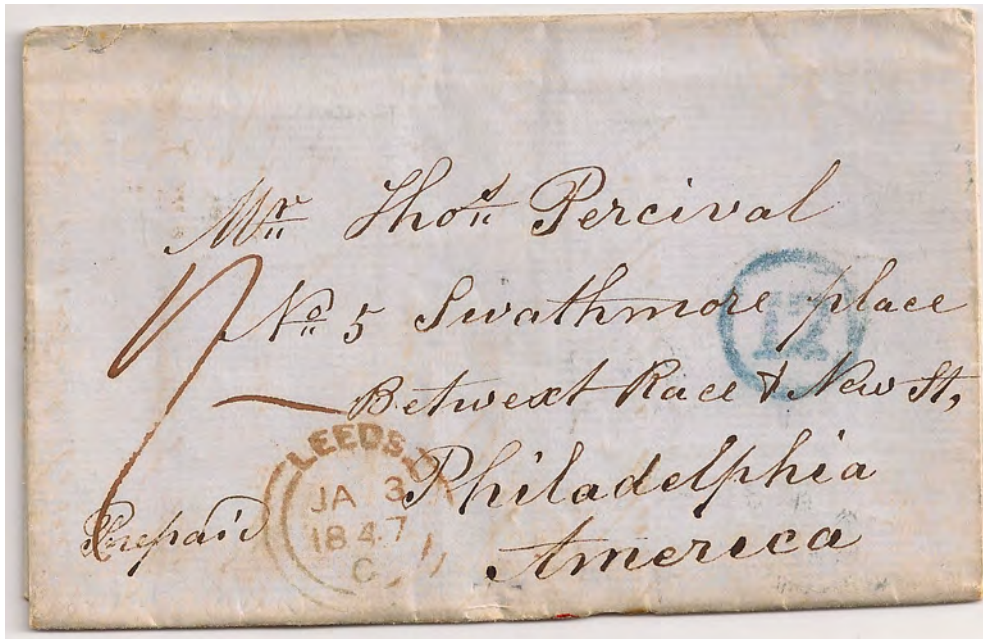 Mr Thos Percival
No 5 Swathmore place
Betwext Race & New St,
Philadelphia
America
Prepaid
1/-
12
LEEDS
JA 3
1847
C